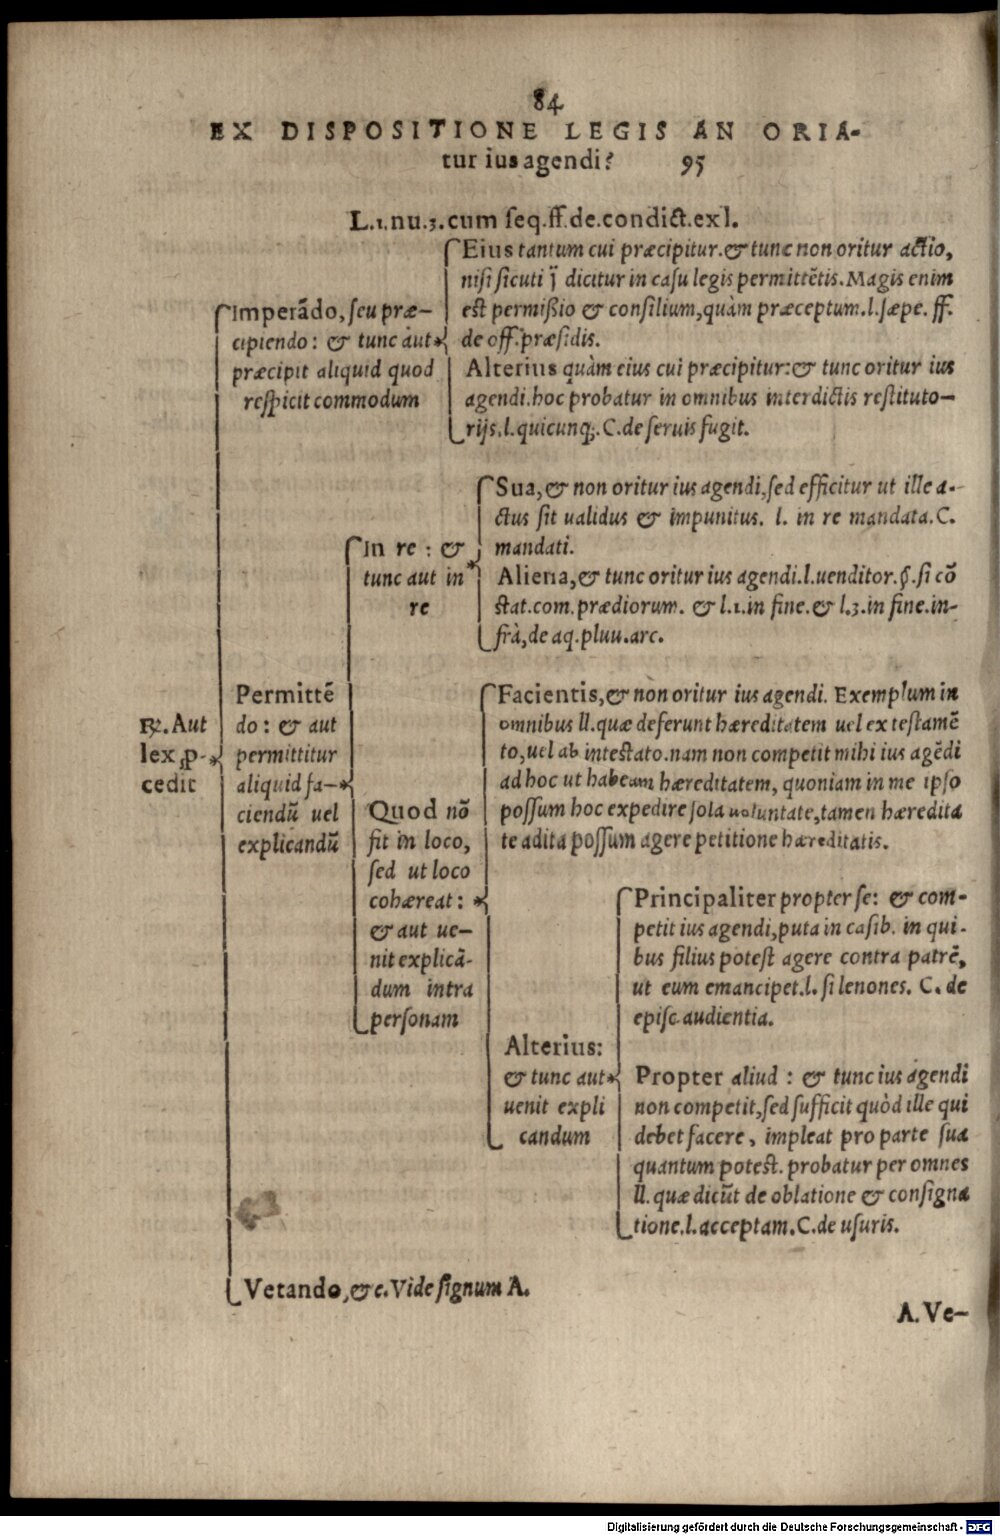 84
EX DISPOSITIONE LEGIS AN ORIA-
tur ius agendi? 95
L.1.nu.3.cum seq.ff.de.condict.exl.
Eius tantum cui præcipitur.& tunc non oritur actio,
nisi sicuti j̃ dicitur in casu legis permittẽtis. Magis enim
est permißio & consilium,quàm præceptum.l.sæpe. ff.
de off.præsidis.
Imperãdo, seu præ-
cipiendo: & tunc aut
præcipit aliquid quod
respicit commodum
Alterius quàm eius cui præcipitur:& tunc oritur ius
agendi.hoc probatur in omnibus interdictis restituto-
rijs.l.quicunq;.C.de seruis fugit.
Sua,& non oritur ius agendi,sed efficitur ut ille a-
ctus sit ualidus & impunitus. l. in re mandata.C.
mandati.
In re : &
tunc aut in
re
Aliena,& tunc oritur ius agendi.l.uenditor.§.si cõ
stat.com.prædiorum. & l.1.in fine.& l.3.in fine.in-
frà,de aq.pluu.arc.
℞. Aut
lex ꝓ-
cedit
Permittẽ
do: & aut
permittitur
aliquid fa-
ciendũ uel
explicandũ
Facientis,& non oritur ius agendi. Exemplum in
omnibus ll.quæ deferunt hæreditatem uel ex testamẽ
to,uel ab intestato.nam non competit mihi ius agẽdi
ad hoc ut habeam hæreditatem, quoniam in me ipso
possum hoc expedire sola uoluntate,tamen hæredita
te adita possum agere petitione hæreditatis.
Quod nõ
fit in loco,
sed ut loco
cohæreat:
& aut ue-
nit explicã-
dum intra
personam
Principaliter propter se: & com-
petit ius agendi,puta in casib. in qui-
bus filius potest agere contra patrẽ,
ut eum emancipet.l. si lenones. C. de
episc.audientia.
Alterius:
& tunc aut
uenit expli
candum
Propter aliud : & tunc ius agendi
non competit,sed sufficit quòd ille qui
debet facere, impleat pro parte sua
quantum potest. probatur per omnes
ll. quæ dicũt de oblatione & consigna
tione.l.acceptam.C.de usuris.
Vetando,&c.Vide signum A.
A. Ve-
Digitalisierung gefördert durch die Deutsche Forschungsgemeinschaft - DFG